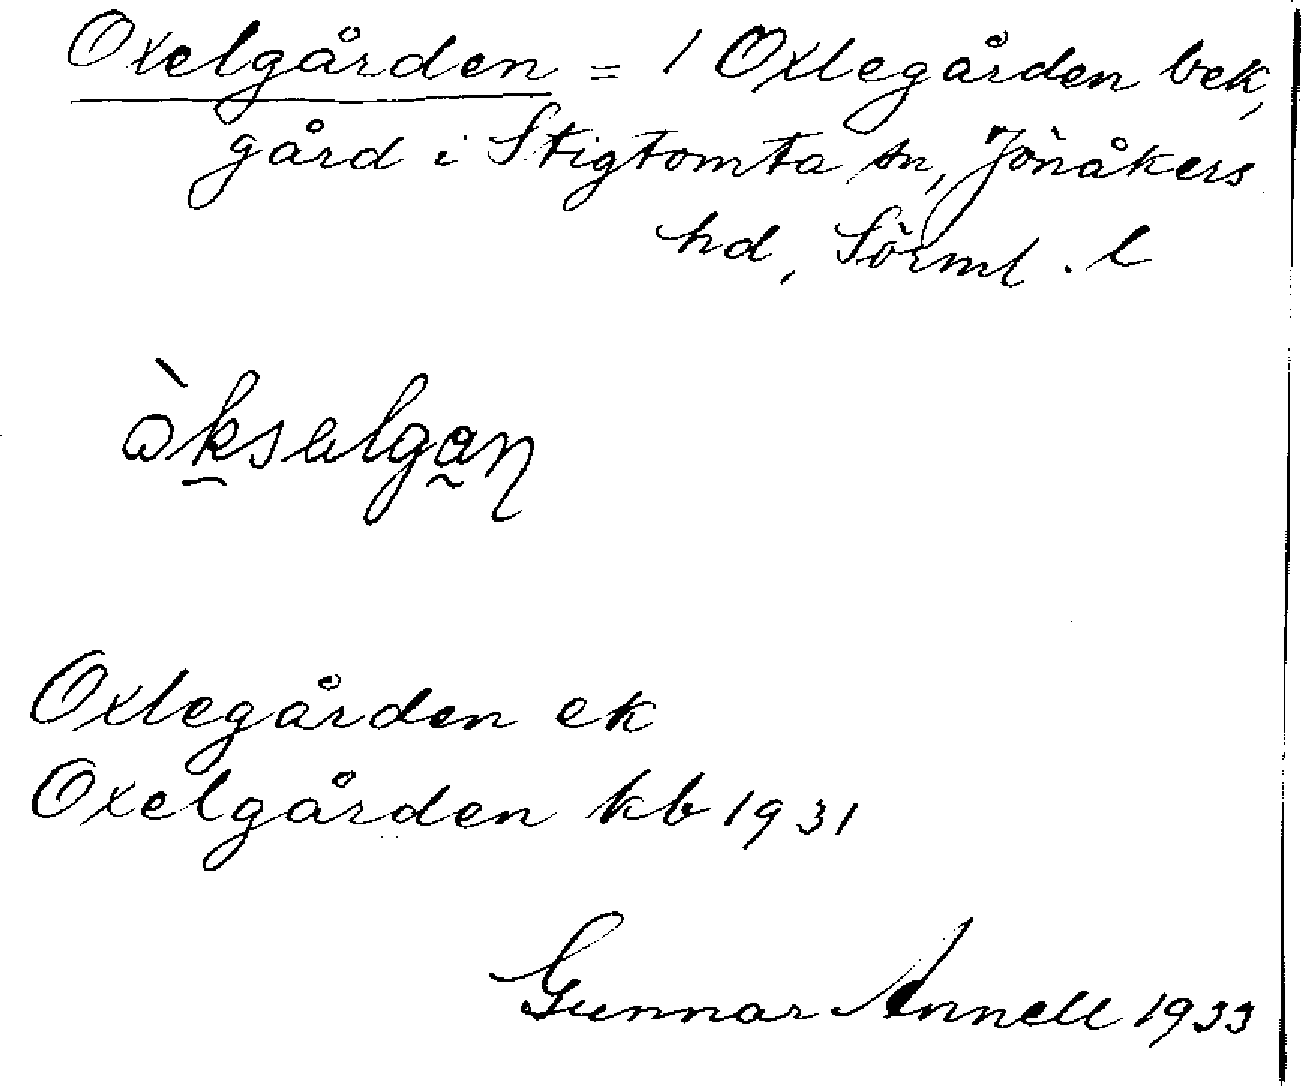 Oxelgården = 1 Oxlegården bek,
gård i Stigtomta sn, Jönåkers
hd, Sörml. l
Oxlegården ek
Oxelgården kb 1931
Gunnar Annell 1933